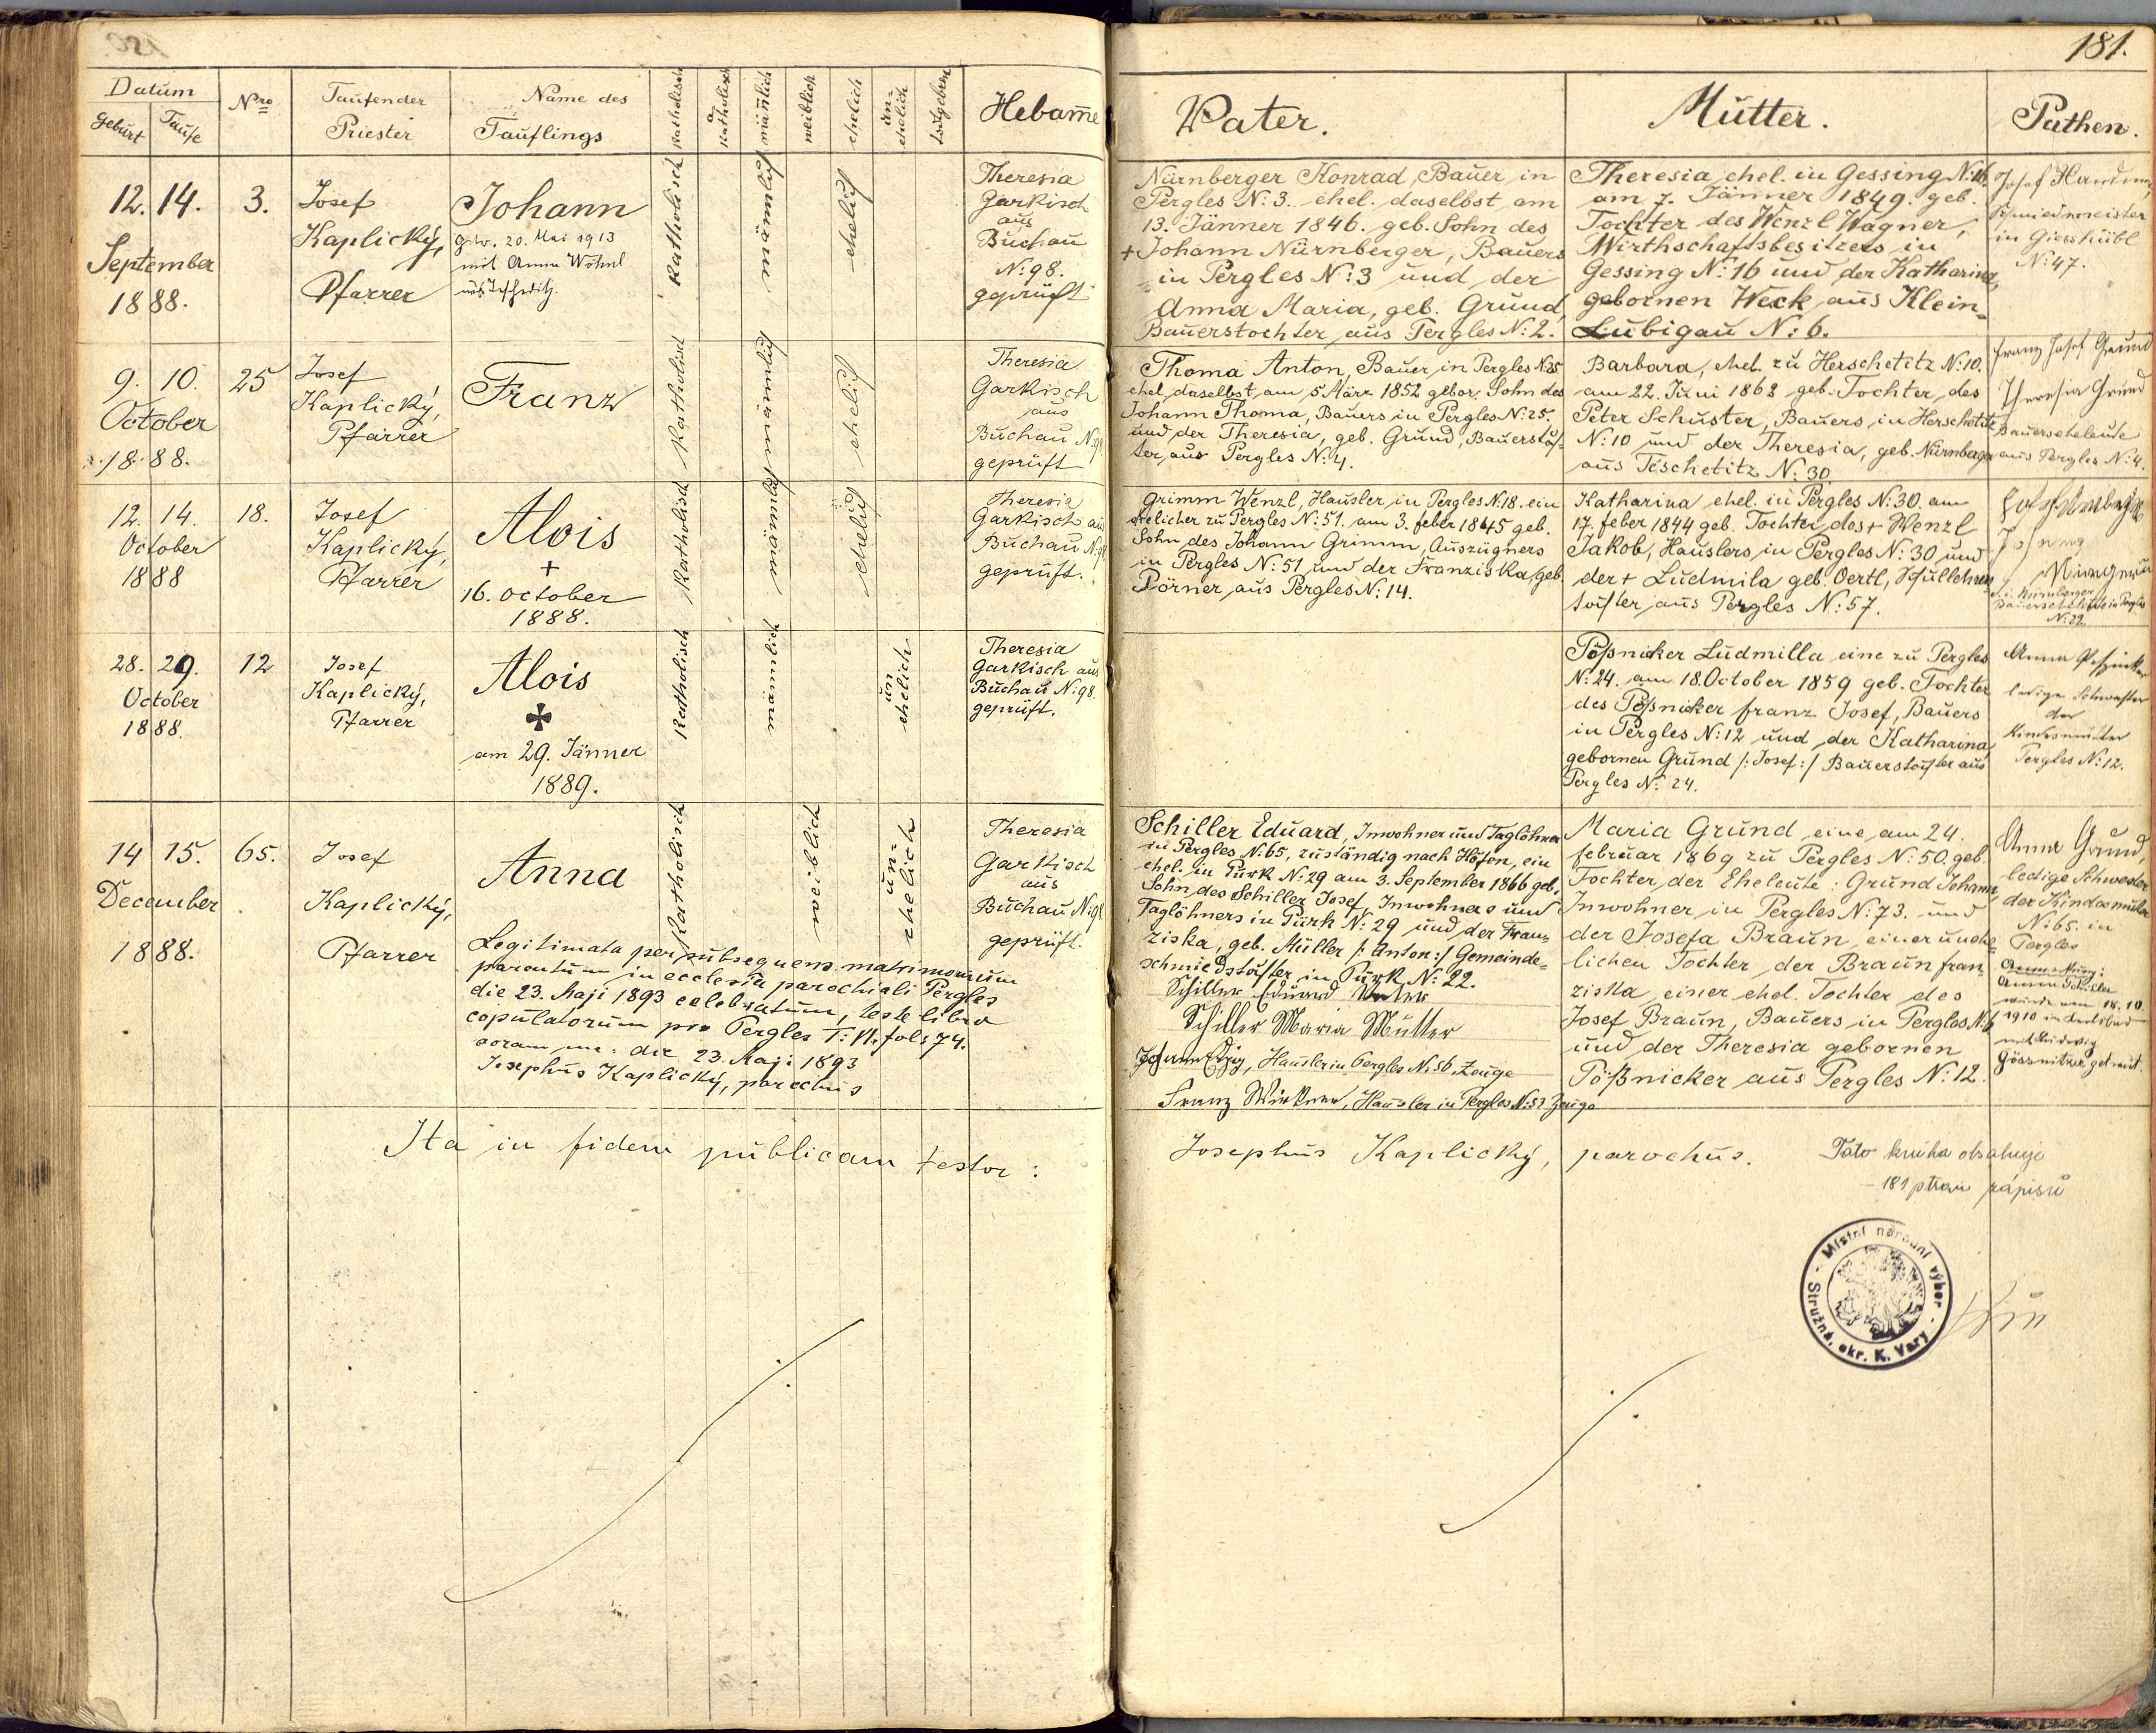 181.
Datum
Geburt
Taufe
Nro
Taufender
Priester
Name des
Täuflings
Katholisch
a
Katholisch
männlich
weiblich
ehelich
un-
ehelich
Hebam̅e
Vater.
Mutter.
Pathen.
12. 14.
September
1888.
3.
Josef
Kaplický,
Pfarrer
Johann
getr. 20. Mai 1913
mit Anna Wöhnl
Katholisch
männlich
ehelich
Theresia
Garkisch
aus
Buchau
N: 98.
geprüft
Nürnberger Konrad, Bauer in
Pergles N: 3. ehel. daselbst am
13. Jänner 1846. geb. Sohn des
+ Johann Nürnberger, Bauers
in Pergles N: 3 und der
Anna Maria, geb. Grund,
Bauerstochter aus Pergles N: 2.
Theresia ehel. in Gessing N: 16.
am 7. Jänner 1849. geb.
Tochter des Wenzl Wagner,
Wirthschaftsbesitzers in
Gessing N: 16 und der Katharina,
gebornen Weck aus Klein-
Lubigau N: 6.
Josef
Schmiedmeister
in Giesshübl
N: 47.
9. 10.
October
1888.
25
Josef
Kaplický,
Pfarrer
Franz
Katholisch
männlich
ehelich
Theresia
Garkisch
aus
Buchau N: 98
geprüft
Thoma Anton, Bauer in Pergles N: 25
ehel. daselbst, am 5 März 1852 gebor. Sohn des
Johann Thoma, Bauers in Pergles N: 25.
und der Theresia, geb. Grund, Bauerstoch-
ter aus Pergles N: 4.
Barbara, ehel. zu Herschetitz N: 10.
am 22. Juni 1862 geb. Tochter des
Peter Schuster, Bauers in Herschetitz
N: 10 und der Theresia, geb. Nürnberger
aus Teschetitz N: 30
Franz Josef Grund
Theresia Grund
Bauerseheleute
aus Pergles N: 4.
12. 14.
October
1888
18.
Josef
Kaplický,
Pfarrer
Alois
+
16. October
1888.
Katholisch
männlich
ehelich
Theresia
Garkisch aus
Buchau N: 98
geprüft.
Grimm Wenzl, Häusler in Pergles N: 18. ein
ehelicher zu Pergles N: 51. am 3. feber 1845 geb.
Sohn des Johann Grimm, Auszügners
in Pergles N: 51 und der Franziska, geb.
Pörner aus Pergles N: 14.
Katharina ehel. in Pergles N: 30. am
17. feber 1844 geb. Tochter des + Wenzl
Jakob, Häuslers in Pergles N: 30 und
der + Ludmila geb. Oertl, Schullehrers-
tochter aus Pergles N: 57.
Nürnberger
Bauerseheleute in Pergles
N: 22.
28. 29.
October
1888.
12
Josef
Kaplický,
Pfarrer
Alois
✠
am 29. Jänner
1889.
Katholisch
männlich
un
ehelich
Theresia
Garkisch aus
Buchau N: 98.
geprüft.
Pößnicker Ludmilla eine zu Pergles
N: 24. am 18 October 1859 geb. Tochter
des Pößnicker franz Josef, Bauers
in Pergles N: 12 und der Katharina,
gebornen Grund /: Josef :/ Bauerstochter aus
Pergles N: 24.
Anna
ledige Schwester
der
Kindesmutter
Pergles N: 12.
14 15.
December
1888.
65.
Josef
Kaplický,
Pfarrer
Anna
Katholisch
weiblich
un-
ehelich
Theresia
Garkisch
aus
Buchau N: 98
geprüft.
Legitimata per subsequens matrimonium
parentum in ecclesia parochiali Pergles
die 23. Maji 1893 celebratum, teste libro
copulatorum pro Pergles T: VI. fol: 74.
coram me: die 23. Maji 1893
Josephus Kaplický, parochus
Schiller Eduard, Inwohner und Taglöhner
in Pergles N: 65, zuständig nach Höfen, ein
ehel. in Purk N: 29 am 3. September 1866 geb.
Sohn des Schiller Josef, Inwohners und
Taglöhners in Purk N: 29 und der Fran-
ziska, geb. Müller /: Anton :/ Gemeinde-
schmiedstochter in Purk N: 22.
Schiller Eduard Vater
Schiller Maria Mutter
Häusler in Pergles N: 56, Zeuge
Franz Wirkner, Häusler in Pergles N: 53 Zeuge
Maria Grund eine am 24.
februar 1869 zu Pergles N: 50. geb.
Tochter der Eheleute: Grund Johann,
Inwohner in Pergles N: 73. und
der Josefa Braun, einer unehe-
lichen Tochter der Braun fran
ziska, einer ehel. Tochter des
Josef Braun, Bauers in Pergles N: 6
und der Theresia gebornen
Pößnicker aus Pergles N: 12.
Anna Grund,
ledige Schwester
der Kindesmutter
N: 65. in
Pergles
Anmerkung:
Anna Schiller
wurde am 18. 10.
1910 in Karlsbad
mit Ludwig
Gössnitzer getraut.
Ita in fidem publicam testor:
Josephus Kaplický, parochus.
Tato kniha obsahuje
- 181 stran zápisů
Místní národní výbor
Stružná, okr. K. Vary